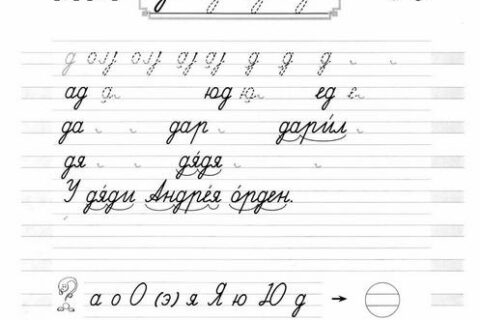 д д д д д д д д
ад а юд ю ед е
да дар дари́л
дя дя́дя
У дя́ди Андре́я о́рден.
а о О (э) я Я ю Ю д →